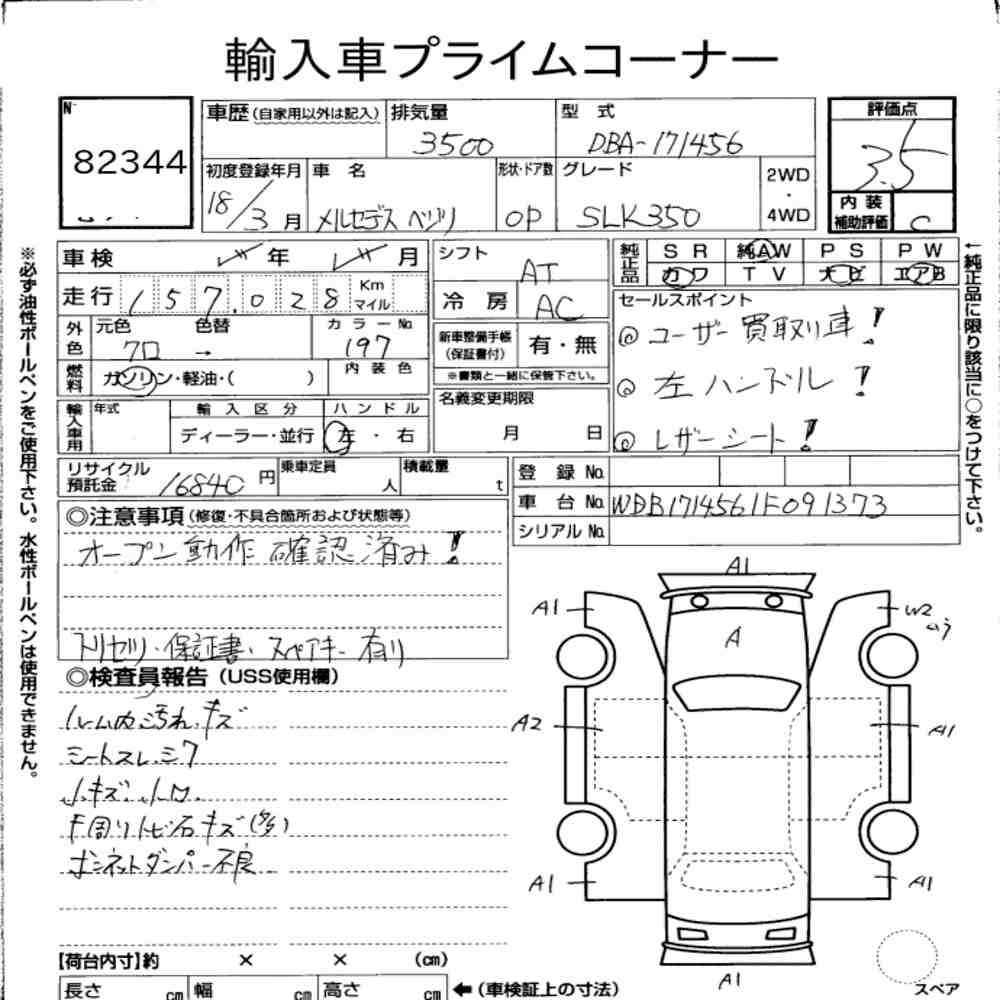 輸入車プライムコーナー
82344
車歴(自家用以外は記入) 排気量 3500 型式 DBA-171456 評価点 3.5
初度登録年月 18/3月 車名 メルセデス ベンツ 形状・ドア数 OP グレード SLK350 2WD・4WD 内装補助評価 C
車検 年 月 シフト AT 純正品 SR 純AW PS PW
カワ TV ナビ エアB
走行 157,028 Km マイル 冷房 AC セールスポイント
外色 元色 クロ 色替 → カラーNo. 197 新車整備手帳(保証書付) 有・無 ◎ユーザー買取り車!
※書類と一緒に保管下さい。
燃料 ガソリン・軽油・( ) 内装色 ◎左ハンドル!
輸入車用 年式 輸入区分 ハンドル 名義変更期限
ディーラー・並行 左・右 月 日 ◎レザーシート!
リサイクル預託金 16840円 乗車定員 人 積載量 t 登録No.
車台No. WDB1714561F091373
シリアルNo.
◎注意事項(修復・不具合箇所および状態等)
オープン動作確認済み!
トリセツ・保証書・スペアキー有り
◎検査員報告(USS使用欄)
ルーム内汚れ、キズ
シートスレ、シワ
小キズ、小凹
下周り飛石キズ(多)
ボンネットダンパー不良
【荷台内寸】約 × × (cm)
長さ cm 幅 cm 高さ cm ←(車検証上の寸法)
※必ず油性ボールペンをご使用下さい。水性ボールペンは使用できません。
←純正品に限り該当に○をつけて下さい。
A1
A1 W2 ムラ
A
A2 A1
A1 A1
A1
スペア